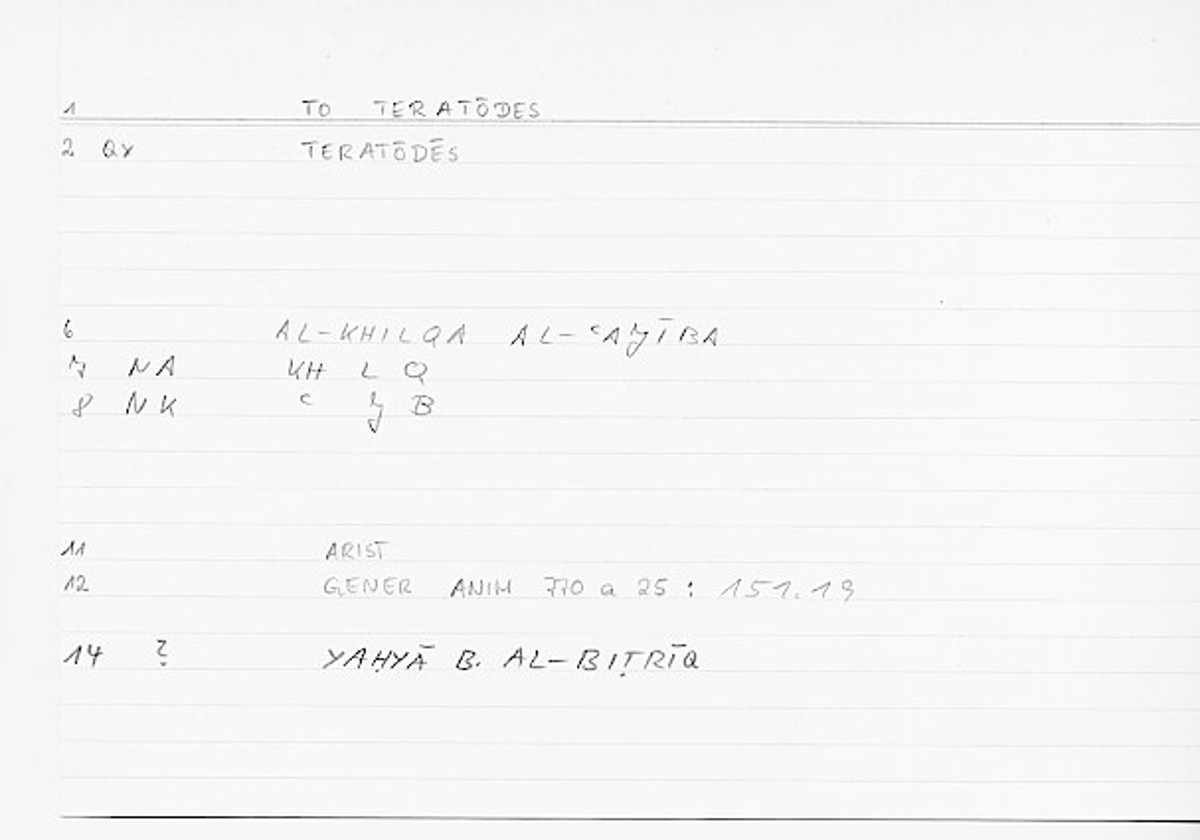 1 TO TERATŌDES
2 Qx TERATŌDĒS
6 AL-KHILQA AL-ʿAJĪBA
7 NA KH L Q
8 NK ʿ J B
11 ARIST
12 GENER ANIM 770 a 25 : 151.19
14 ? YAḤYĀ B. AL-BIṬRĪQ